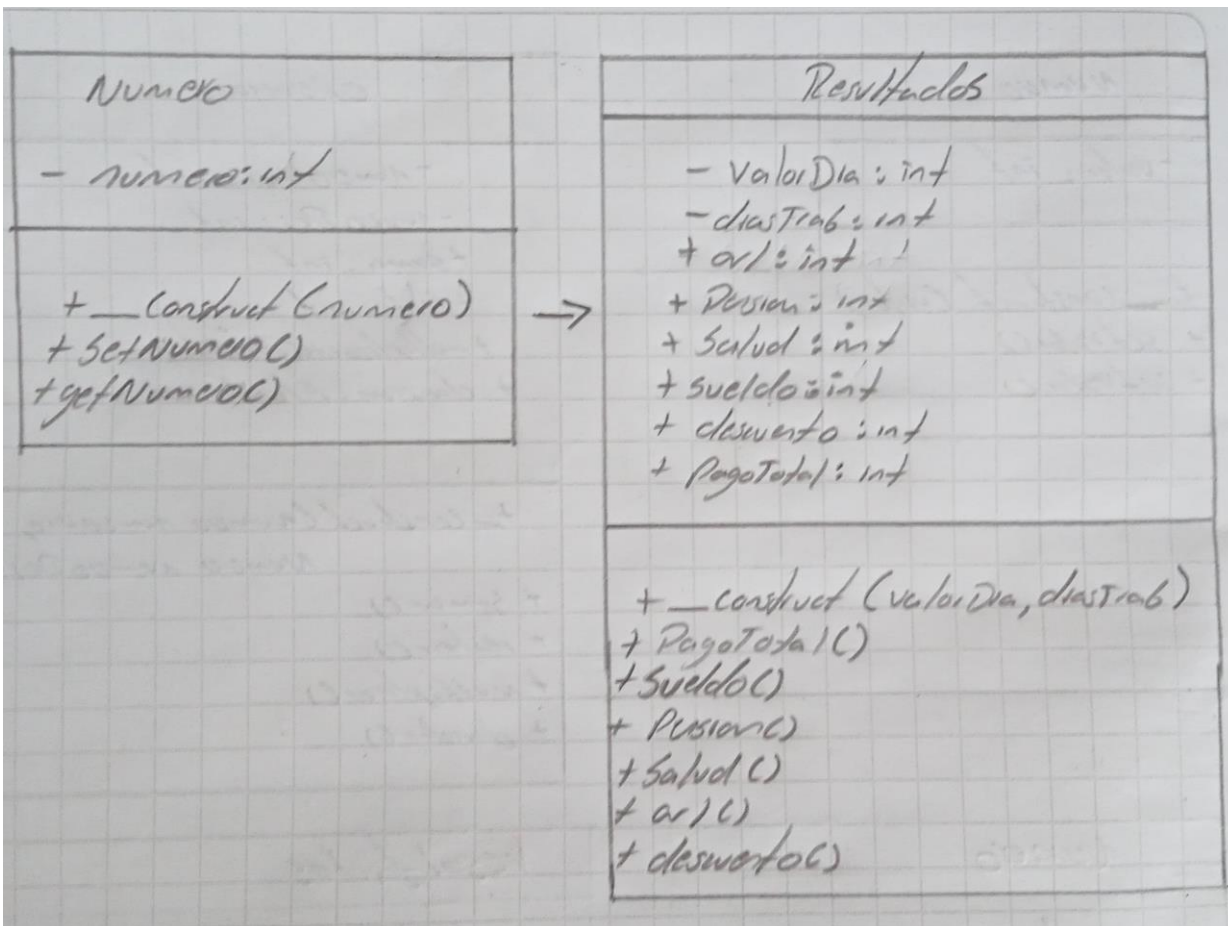 Numero
- numero: int
+ __construct (numero)
+ SetNumero()
+ getNumero()
Resultados
- ValorDia : int
- diasTrab : int
+ arl : int
+ Pension : int
+ Salud : int
+ sueldo : int
+ descuento : int
+ PagoTotal : int
+ __construct (valorDia, diasTrab)
+ PagoTotal()
+ Sueldo()
+ Pension()
+ Salud ()
+ arl()
+ descuento()